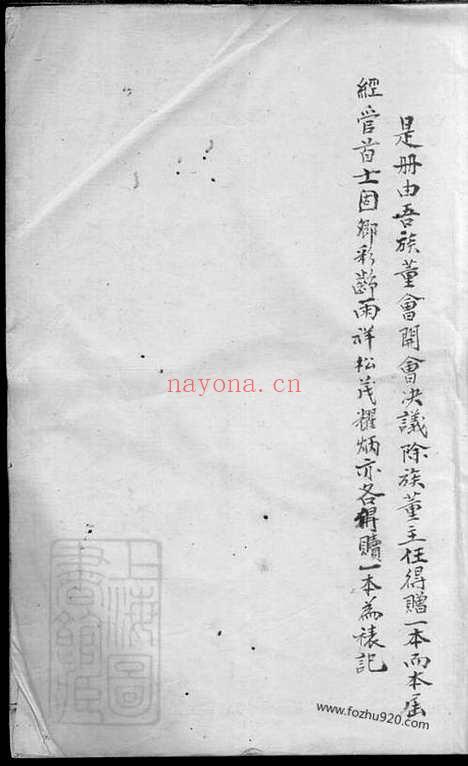 是册由吾族董會開會决議除族董主任得贈一本而本屆
經管首士固卿彩齡雨祥松茂耀炳亦各得贖一本為裱記
nayona.cn
上海圖
書館藏
www.fozhu920.com